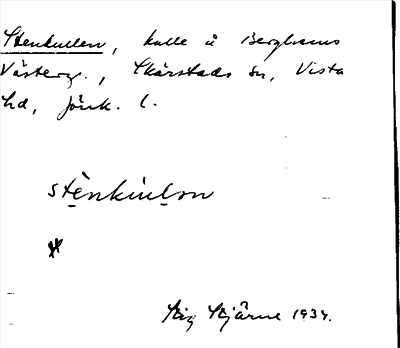 Stenkullen, kulle å Berghems
Västerg., Skärstads sn, Vista
hd, Jönk. l.
stènkulon
Stig Stjärne 1934.